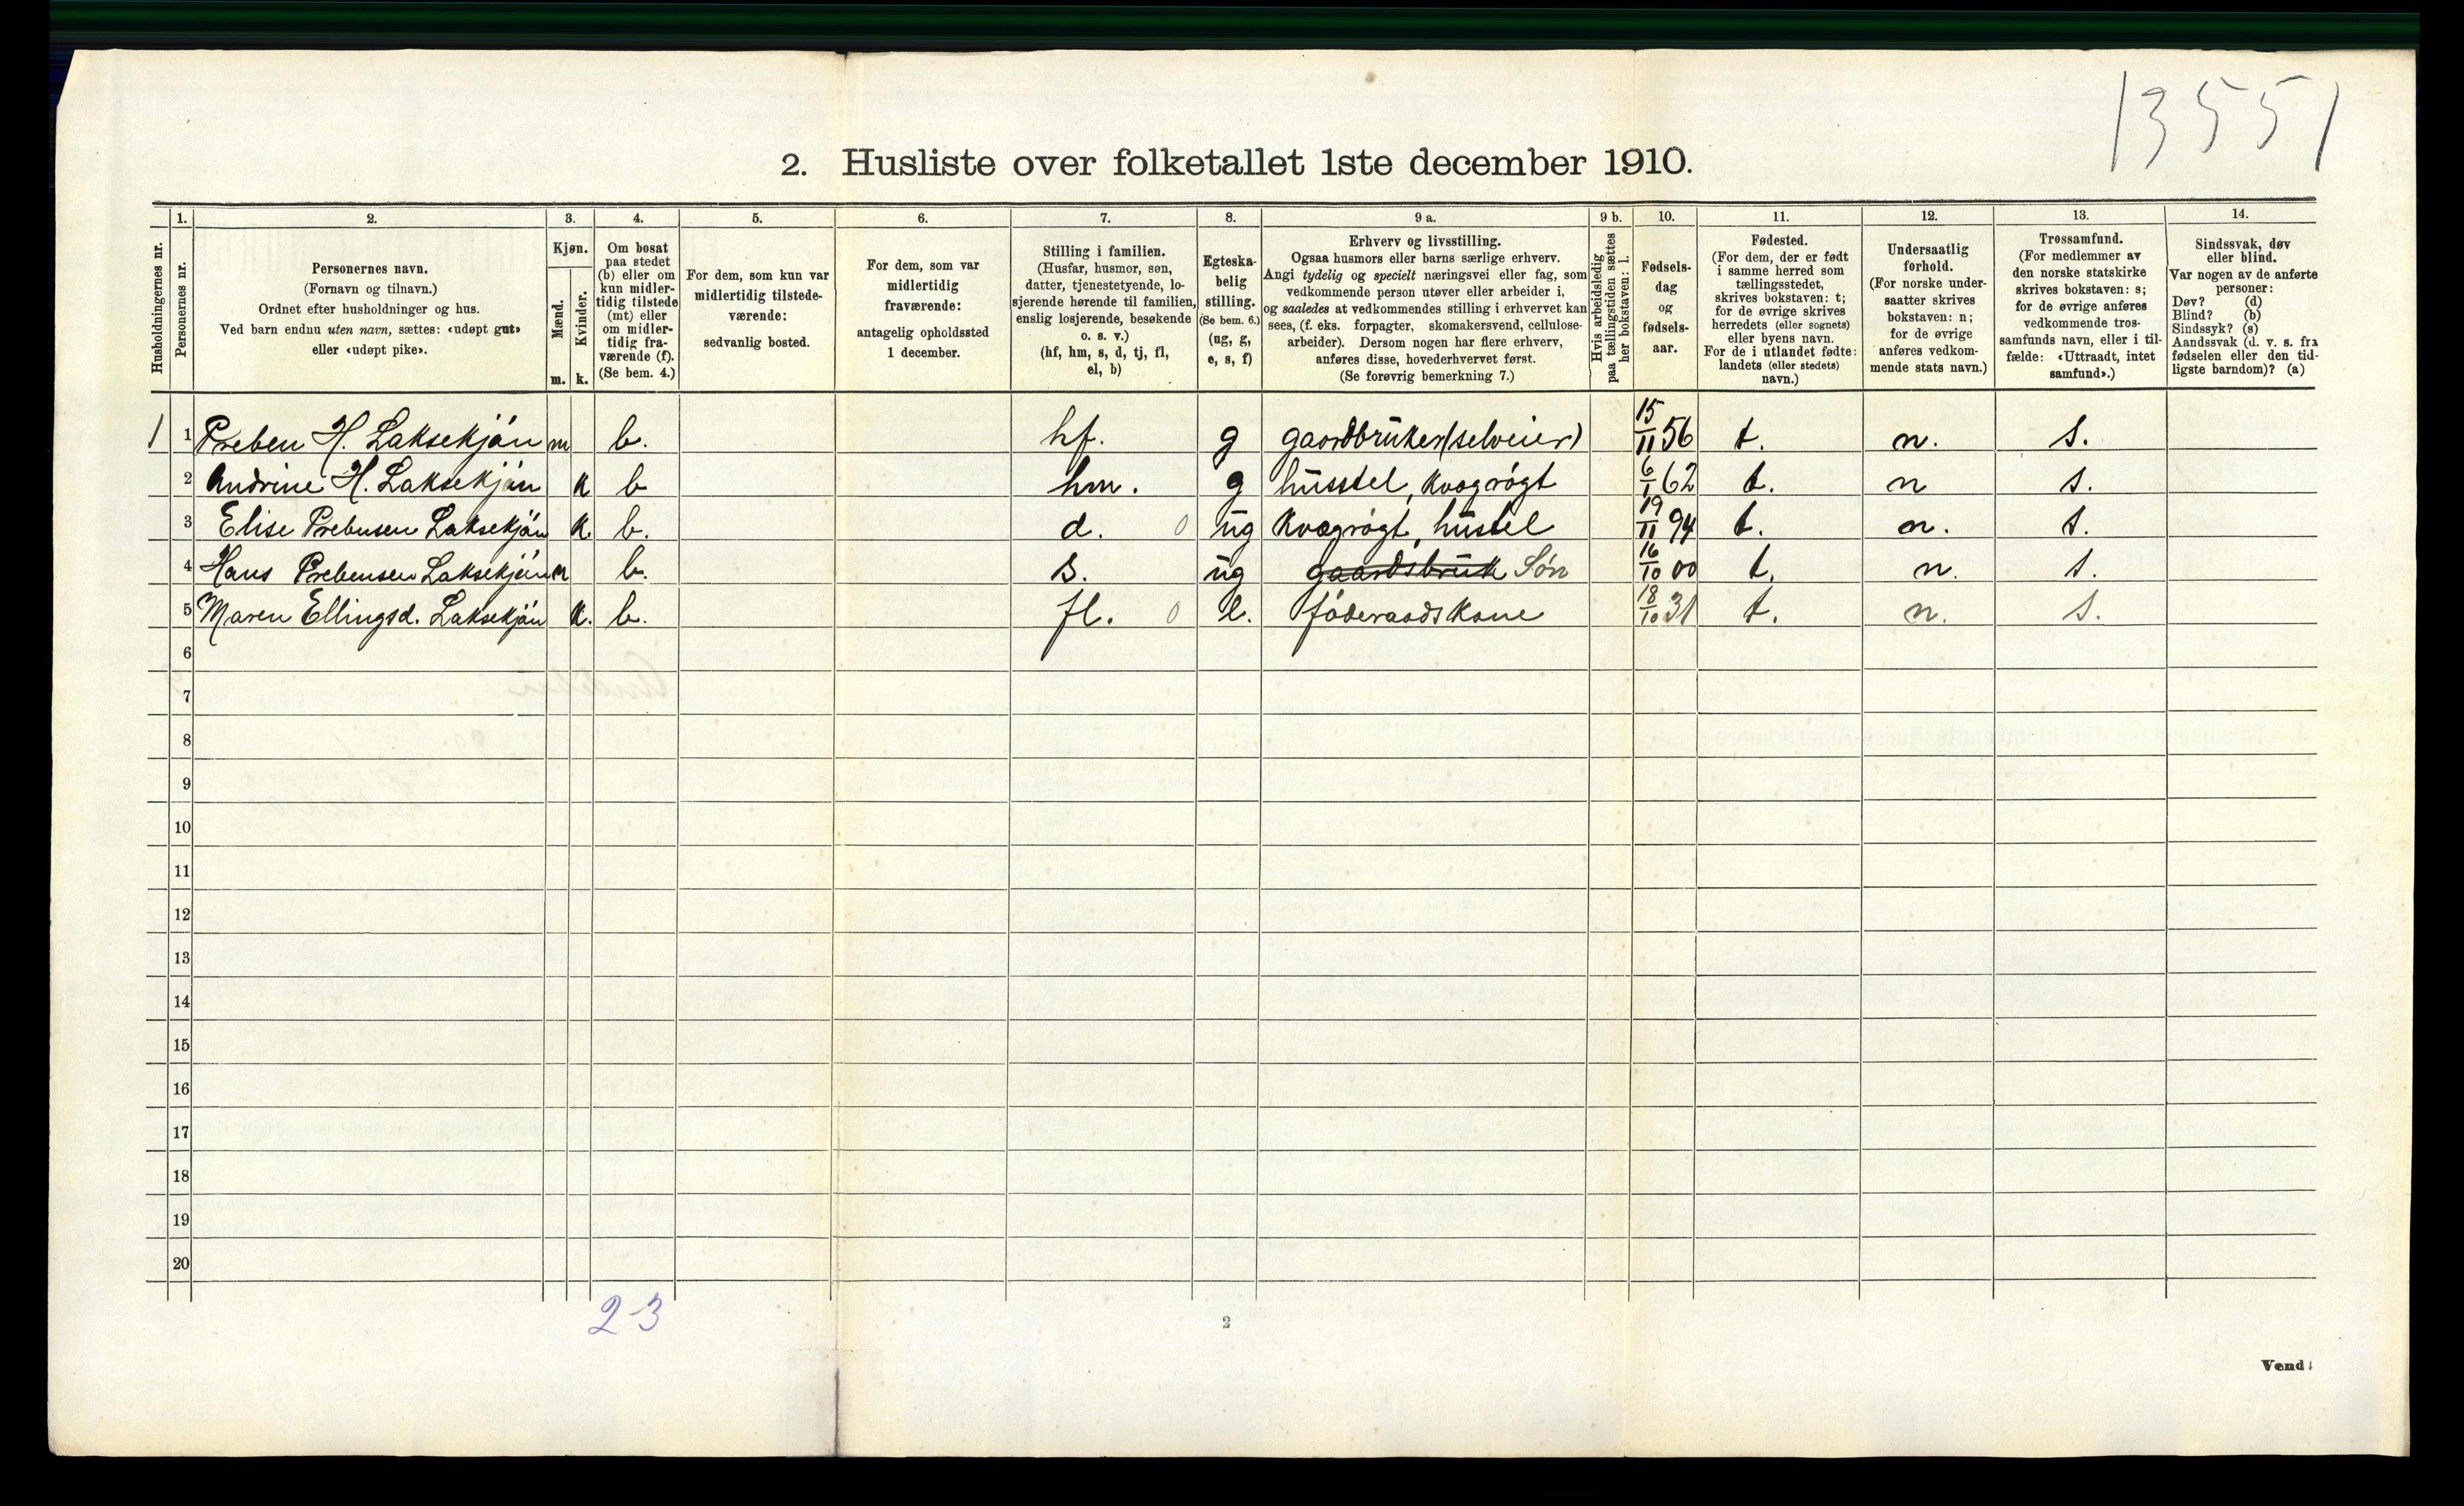 13551
2. Husliste over folketallet 1ste december 1910.
Husholdningernes nr.
1.
Personernes nr.
2.
Personernes navn.
(Fornavn og tilnavn.)
Ordnet efter husholdninger og hus.
Ved barn endnu uten navn, sættes: «udøpt gut»
eller «udøpt pike».
3.
Kjøn.
Mænd.
Kvinder.
m. k.
4.
Om bosat
paa stedet
(b) eller om
kun midler-
tidig tilstede
(mt) eller
om midler-
tidig fra-
værende (f).
(Se bem. 4.)
5.
For dem, som kun var
midlertidig tilstede-
værende:
sedvanlig bosted.
6.
For dem, som var
midlertidig
fraværende:
antagelig opholdssted
1 december.
7.
Stilling i familien.
(Husfar, husmor, søn,
datter, tjenestetyende, lo-
sjerende hørende til familien,
enslig losjerende, besøkende
o. s. v.)
(hf, hm, s, d, tj, fl,
el, b)
8.
Egteska-
belig
stilling.
(Se bem. 6.)
(ug, g,
e, s, f)
9 a.
Erhverv og livsstilling.
Ogsaa husmors eller barns særlige erhverv.
Angi tydelig og specielt næringsvei eller fag, som
vedkommende person utøver eller arbeider i,
og saaledes at vedkommendes stilling i erhvervet kan
sees, (f. eks. forpagter, skomakersvend, cellulose-
arbeider). Dersom nogen har flere erhverv,
anføres disse, hovederhvervet først.
(Se forøvrig bemerkning 7.)
9 b.
Hvis arbeidsledig
paa tællingstiden sættes
her bokstaven: l.
10.
Fødsels-
dag
og
fødsels-
aar.
11.
Fødested.
(For dem, der er født
i samme herred som
tællingsstedet,
skrives bokstaven: t;
for de øvrige skrives
herredets (eller sognets)
eller byens navn.
For de i utlandet fødte:
landets (eller stedets)
navn.)
12.
Undersaatlig
forhold.
(For norske under-
saatter skrives
bokstaven: n;
for de øvrige
anføres vedkom-
mende stats navn.)
13.
Trossamfund.
(For medlemmer av
den norske statskirke
skrives bokstaven: s;
for de øvrige anføres
vedkommende tros-
samfunds navn, eller i til-
fælde: «Uttraadt, intet
samfund».)
14.
Sindssvak, døv
eller blind.
Var nogen av de anførte
personer:
Døv? (d)
Blind? (b)
Sindssyk? (s)
Aandssvak (d. v. s. fra
fødselen eller den tid-
ligste barndom)? (a)
1 1 Preben H. Laksekjön m b. hf. g gaardbruker (selveier) 15/11 56 t. n. s.
2 Andrine H. Laksekjön k b hm. g husstel, kvægrögt 6/1 62 t. n s.
3 Elise Prebensen Laksekjön k. b. d. 0 ug kvægrögt, husstel 19/11 94 t. n. s.
4 Hans Prebensen Laksekjön m b. s. ug gaardsbruk Søn 16/10 00 t. n. s.
5 Maren Ellingsd. Laksekjön k. b. fl. 0 e. föderaadskone 18/10 31 t. n. s.
6
7
8
9
10
11
12
13
14
15
16
17
18
19
20
2-3
2
Vend!